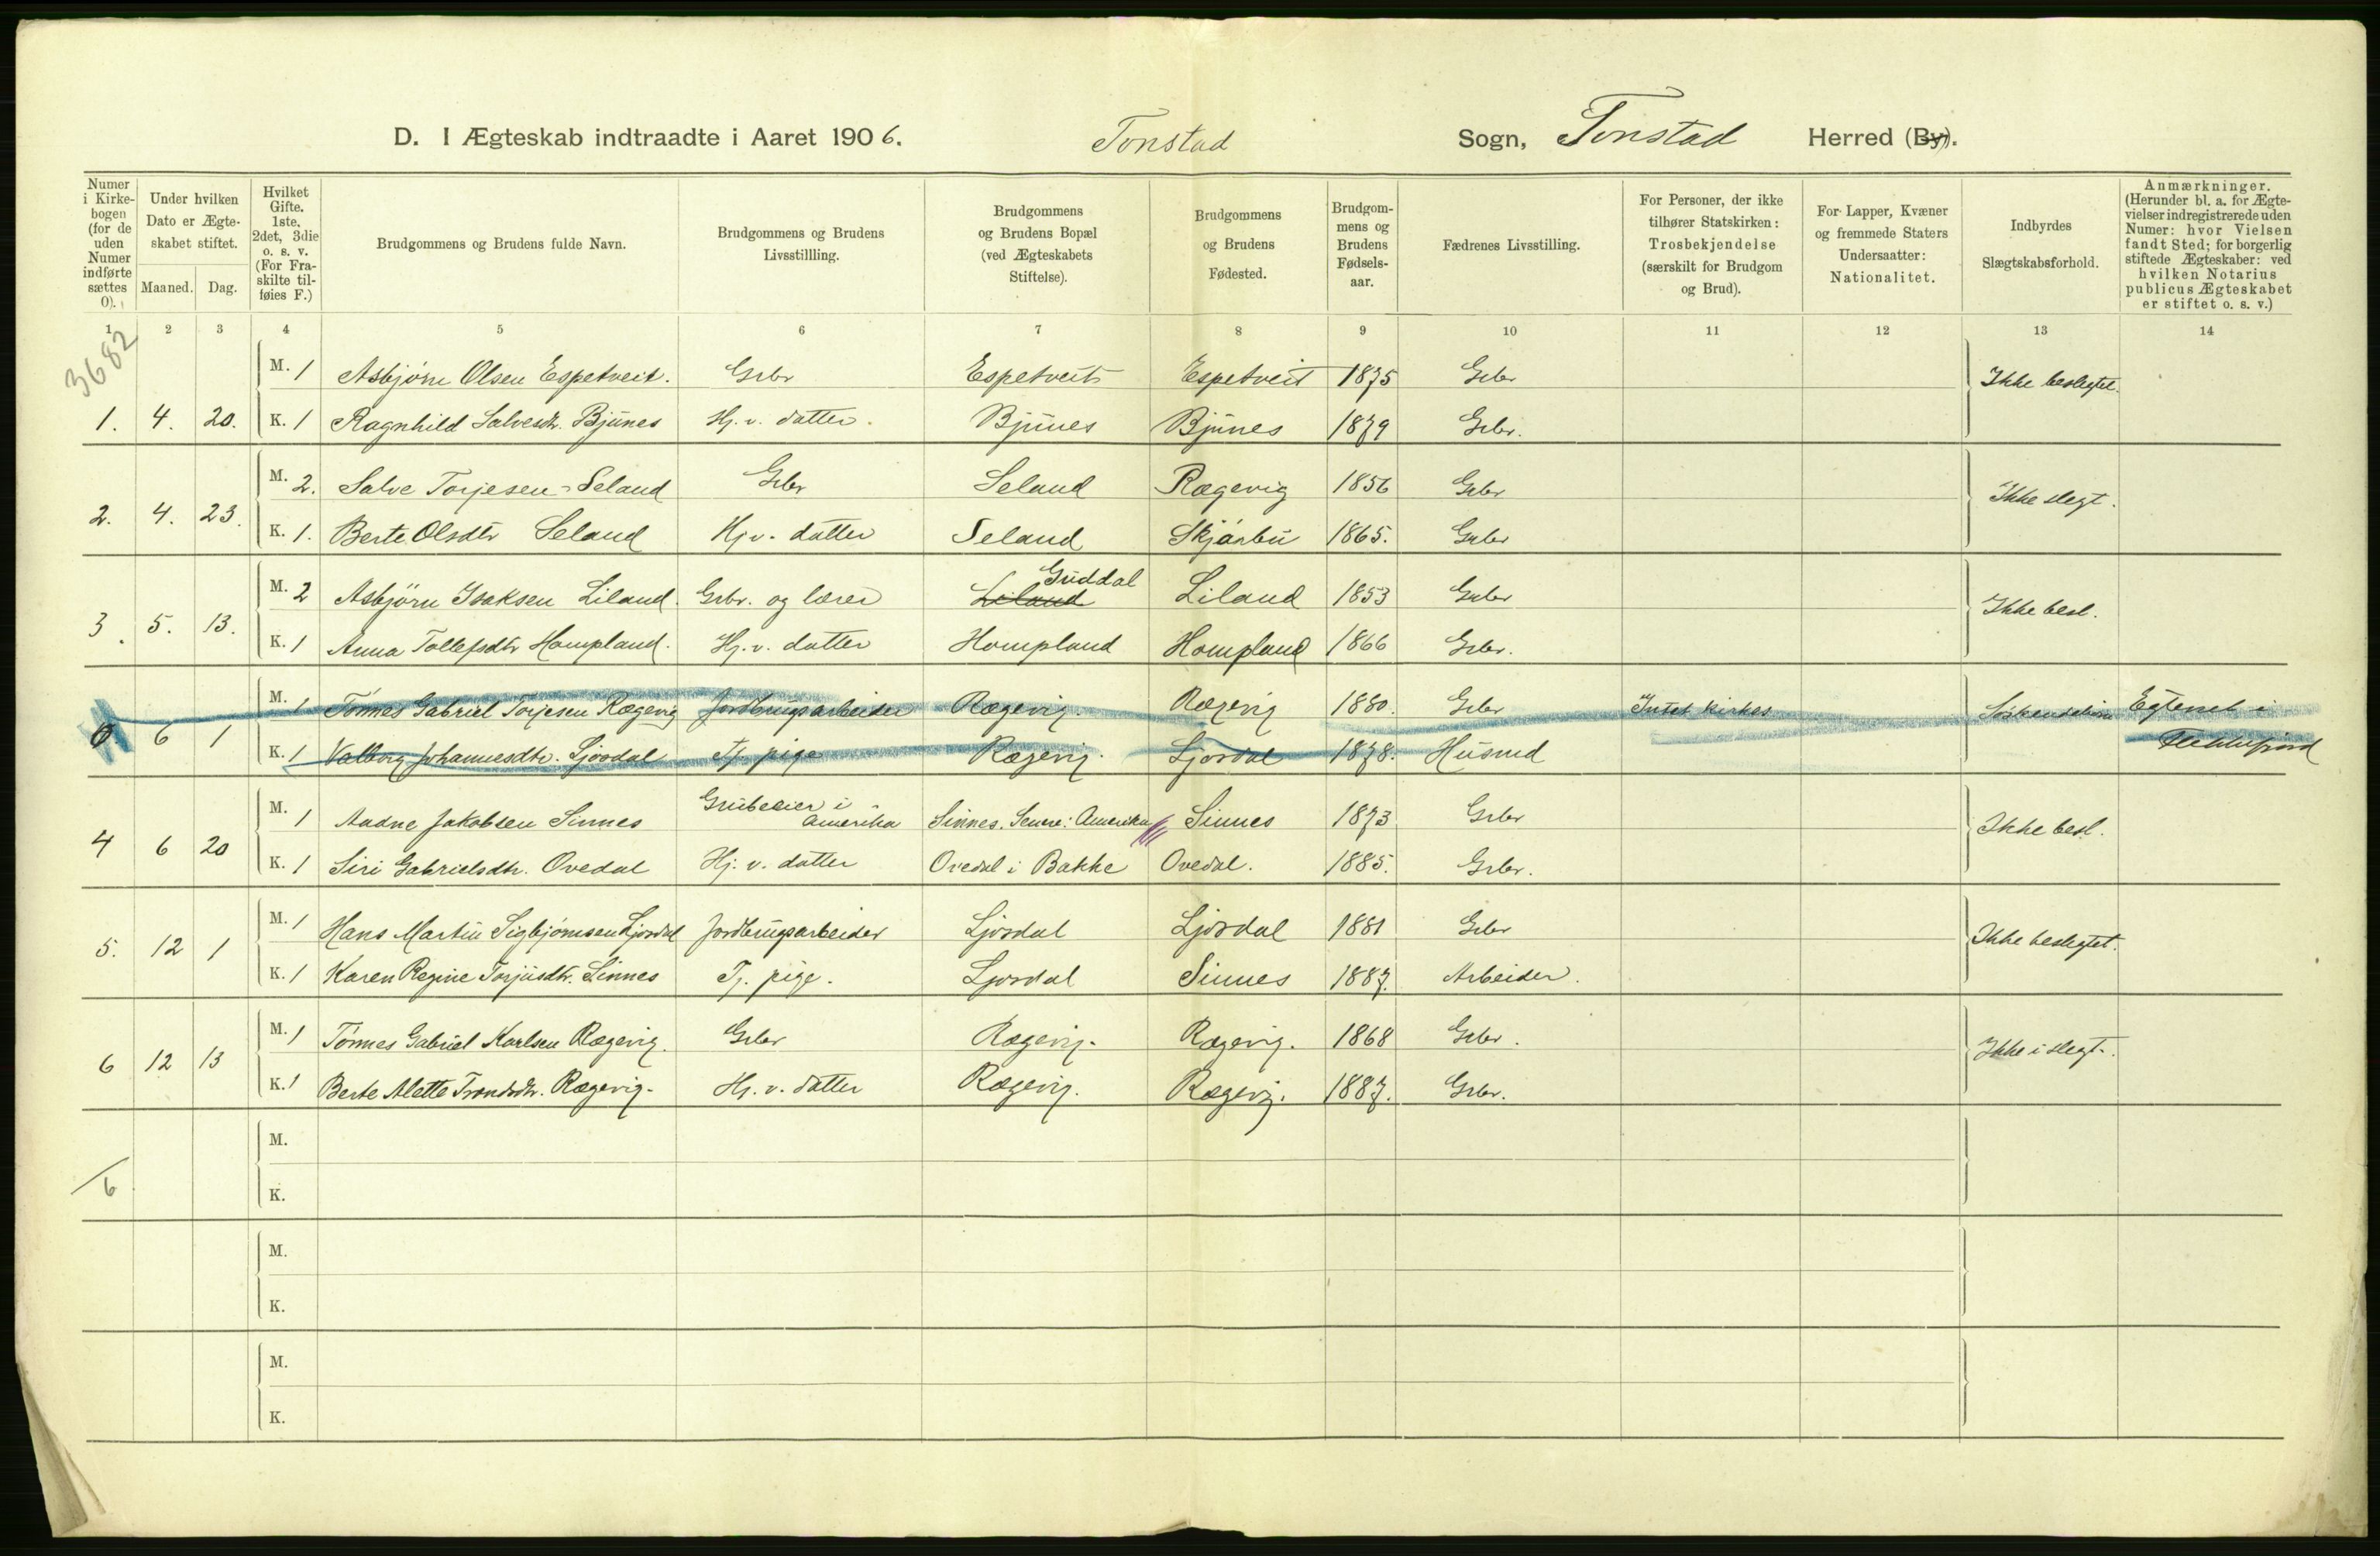 D. I Ægteskab indtraadte i Aaret 1906. Tonstad Sogn, Tonstad Herred (By).
Numer i Kirkebogen (for de uden Numer indførte sættes 0).
Under hvilken Dato er Ægteskabet stiftet.
Maaned. Dag.
Hvilket Gifte. 1ste, 2det, 3die o. s. v. (For Fraskilte tilføies F.)
Brudgommens og Brudens fulde Navn.
Brudgommens og Brudens Livsstillling.
Brudgommens og Brudens Bopæl (ved Ægteskabets Stiftelse).
Brudgommens og Brudens Fødested.
Brudgommens og Brudens Fødselsaar.
Fædrenes Livsstilling.
For Personer, der ikke tilhører Statskirken: Trosbekjendelse (særskilt for Brudgom og Brud).
For Lapper, Kvæner og fremmede Staters Undersaatter: Nationalitet.
Indbyrdes Slægtskabsforhold.
Anmærkninger. (Herunder bl. a. for Ægtevielser indregistrerede uden Numer: hvor Vielsen fandt Sted; for borgerlig stiftede Ægteskaber: ved hvilken Notarius publicus Ægteskabet er stiftet o. s. v.)
1 2 3 4 5 6 7 8 9 10 11 12 13 14
3682
M. 1 Asbjørn Olsen Espetveit. Grbr Espetveit Espetveit 1875 Grbr Ikke beslegtet.
1. 4. 20. K. 1 Ragnhild Salvesdtr. Bjunes Hj. v. datter. Bjunes Bjunes 1879 Grbr.
M. 2. Salve Torjesen Seland Grbr Seland Rægevig 1856 Grbr Ikke slegt.
2. 4. 23. K. 1. Berte Olsdtr Seland Hj v. datter Seland Skjärbu 1865. Grbr
M. 2 Asbjörn Isaksen Liland. Grbr. og lærer Liland Guddal Liland 1853 Grbr Ikke besl.
3. 5. 13. K. 1 Anna Tollefsdtr Hompland. Hj. v. datter Hompland Hompland 1866 Grbr.
M. 1 Tönnes Gabriel Torjesen Rægevig Jordbrugsarbeider Rægevig. Rægevig 1880. Grbr Intet kirkes. Egteviet i
0 6 1 K. 1 Valborg Johannesdtr. Ljosdal Tj. pige Rægevig. Ljosdal 1878. Husmd Flekkefjord
M. 1 Aadne Jakobsen Sinnes Grubeeier i Amerika Sinnes. Senere: Amerika Sinnes 1873 Grbr Ikke besl.
4 6 20 K. 1 Siri Gabrielsdtr. Ovedal Hj. v. datter Ovedal i Bakke Ovedal. 1885. Grbr.
M. 1 Hans Martin Sigbjörnsen Ljosdal Jordbrugsarbeider Ljosdal Ljosdal 1881 Grbr Ikke beslegtet.
5. 12 1 K. 1 Karen Regine Torjusdtr. Sinnes Tj. pige. Ljosdal Sinnes 1887. Arbeider.
M. 1 Tönnes Gabriel Karlsen Rægevig. Grbr Rægevig. Rægevig. 1868 Grbr. Ikke i slegt.
6 12 13 K. 1 Berte Alette Trondsdtr. Rægevig. Hj. v. datter Rægevig. Rægevig. 1887. Grbr.
M.
6 K.
M.
K.
M.
K.